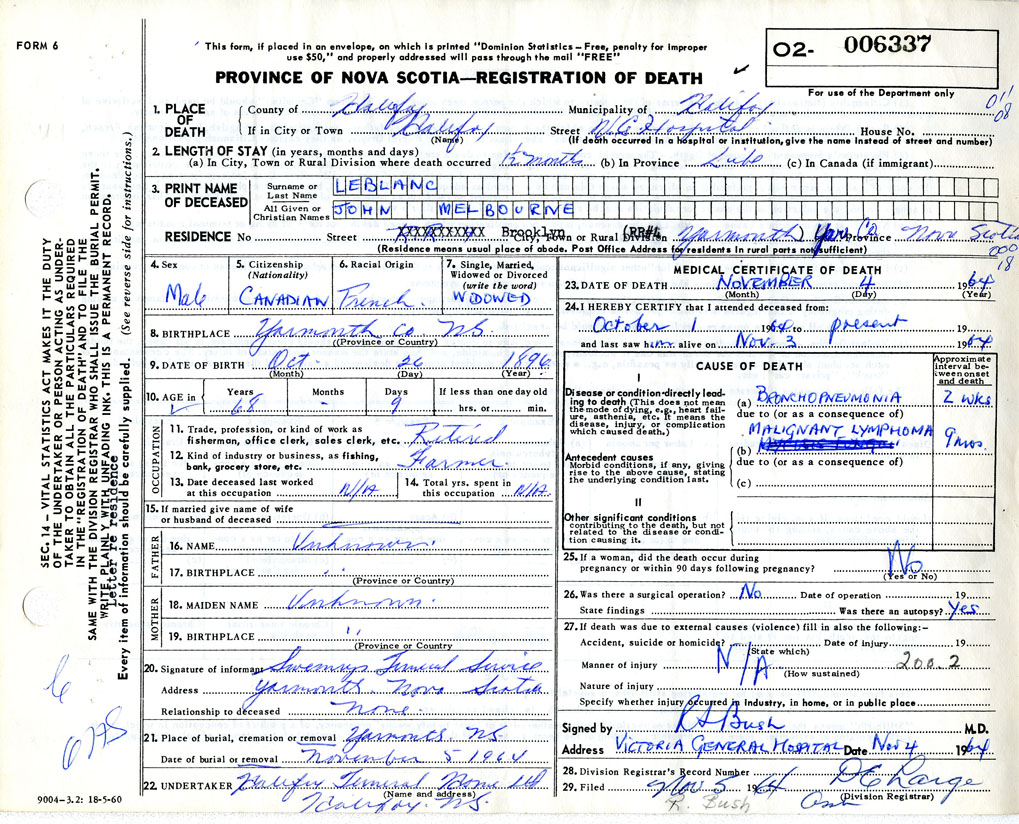 FORM 6
This form, if placed in an envelope, on which is printed "Dominion Statistics – Free, penalty for improper
use $50," and properly addressed will pass through the mail "FREE"
PROVINCE OF NOVA SCOTIA—REGISTRATION OF DEATH
O2- 006337
For use of the Department only
011
08
1. PLACE OF DEATH
County of Halifax Municipality of Halifax
If in City or Town Halifax Street V.G. Hospital House No.
(Name) (If death occurred in a hospital or institution, give the name instead of street and number)
2. LENGTH OF STAY (in years, months and days)
(a) In City, Town or Rural Division where death occurred 1½ months (b) In Province Life (c) In Canada (if immigrant)
3. PRINT NAME OF DECEASED
Surname or Last Name LEBLANC
All Given or Christian Names JOHN MELBOURNE
RESIDENCE No Street XXXXXXXXXXX Brooklyn City, Town or Rural Division (RR#4 Yarmouth) Yar. Co Province Nova Scotia
(Residence means usual place of abode. Post Office Address for residents in rural parts not sufficient)
000
18
4. Sex Male
5. Citizenship (Nationality) CANADIAN
6. Racial Origin French.
7. Single, Married, Widowed or Divorced (write the word) WIDOWED
8. BIRTHPLACE Yarmouth Co. N.S.
(Province or Country)
9. DATE OF BIRTH Oct. 26 1896
(Month) (Day) (Year)
10. AGE in Years 68 Months - Days 9 If less than one day old hrs. or min.
OCCUPATION
11. Trade, profession, or kind of work as fisherman, office clerk, sales clerk, etc. Retired
12. Kind of industry or business, as fishing, bank, grocery store, etc. Farmer.
13. Date deceased last worked at this occupation N/A
14. Total yrs. spent in this occupation N/A.
15. If married give name of wife or husband of deceased
FATHER
16. NAME Unknown.
17. BIRTHPLACE " (Province or Country)
MOTHER
18. MAIDEN NAME Unknown.
19. BIRTHPLACE " (Province or Country)
20. Signature of informant Sweeny's Funeral Service
Address Yarmouth. Nova Scotia
Relationship to deceased None.
21. Place of burial, cremation or removal Yarmouth N.S.
Date of burial or removal November 5 1964
22. UNDERTAKER Halifax Funeral Home Ltd
(Name and address)
Halifax. N.S.
MEDICAL CERTIFICATE OF DEATH
23. DATE OF DEATH NOVEMBER 4 1964
(Month) (Day) (Year)
24. I HEREBY CERTIFY that I attended deceased from:
October 1 1964 to present 19
and last saw him alive on Nov. 3 1964
CAUSE OF DEATH
Approximate interval between onset and death
I
Disease or condition directly leading to death (This does not mean the mode of dying, e.g., heart failure, asthenia, etc. It means the disease, injury, or complication which caused death.)
(a) BRONCHOPNEUMONIA 2 wks
due to (or as a consequence of)
MALIGNANT LYMPHOMA 9 mos.
(b)
due to (or as a consequence of)
(c)
Antecedent causes
Morbid conditions, if any, giving rise to the above cause, stating the underlying condition last.
II
Other significant conditions
contributing to the death, but not related to the disease or condition causing it.
25. If a woman, did the death occur during pregnancy or within 90 days following pregnancy? No
(Yes or No)
26. Was there a surgical operation? No Date of operation 19
State findings Was there an autopsy? Yes
27. If death was due to external causes (violence) fill in also the following:–
Accident, suicide or homicide? Date of injury 19
(State which)
Manner of injury N/A 200.2
(How sustained)
Nature of injury
Specify whether injury occurred in industry, in home, or in public place
Signed by R S Bush M.D.
Address VICTORIA GENERAL HOSPITAL Date Nov 4 1964
28. Division Registrar's Record Number
29. Filed Nov 5 1964 D E Large
(Division Registrar)
R. Bush
SEC. 14 – VITAL STATISTICS ACT MAKES IT THE DUTY
OF THE UNDERTAKER OR PERSON ACTING AS UNDERTAKER
TO OBTAIN ALL THE PARTICULARS REQUIRED
IN THE "REGISTRATION OF DEATH" AND TO FILE THE
SAME WITH THE DIVISION REGISTRAR WHO SHALL ISSUE THE BURIAL PERMIT.
WRITE PLAINLY WITH UNFADING INK. THIS IS A PERMANENT RECORD.
letter re residence
Every item of information should be carefully supplied. (See reverse side for instructions.)
9004–3.2: 18-5-60